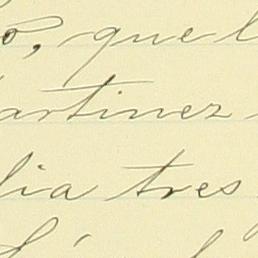 o, que l
artinez
lia tres